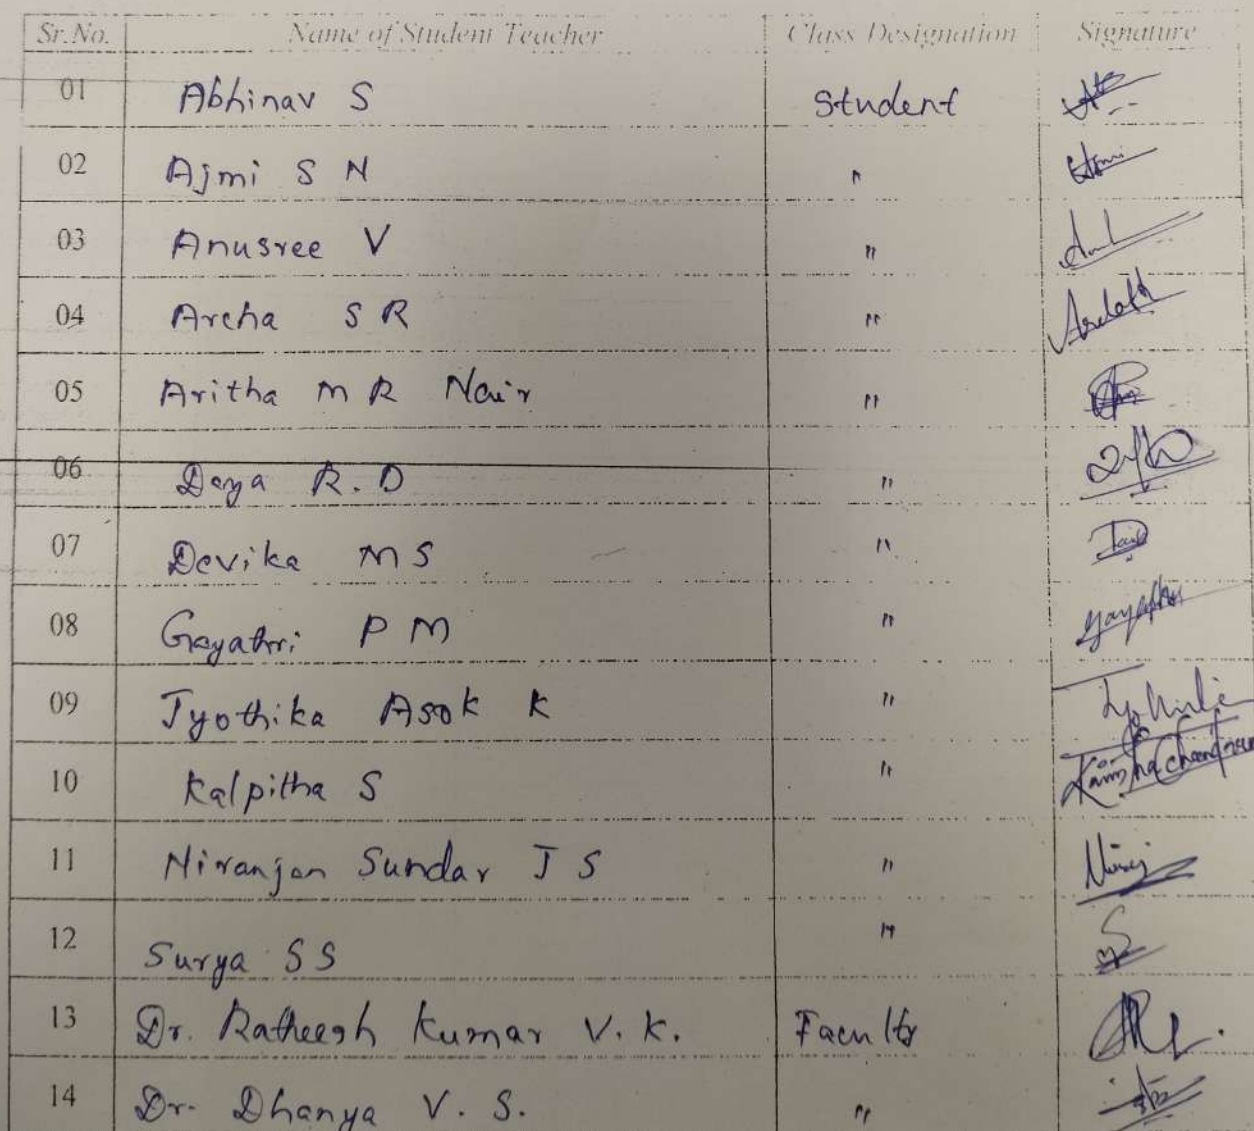 Sr.No. Name of Student Teacher Class Designation Signature
01 Abhinav S Student
02 Ajmi S N " Ajmi
03 Anusree V "
04 Archa S R "
05 Aritha M R Nair "
06 Daya R.D "
07 Devika M S "
08 Gayathri P M "
09 Jyothika Asok K "
10 Kalpitha S "
11 Niranjan Sundar J S "
12 Surya S S "
13 Dr. Ratheesh Kumar V. K. Faculty
14 Dr. Dhanya V. S. "